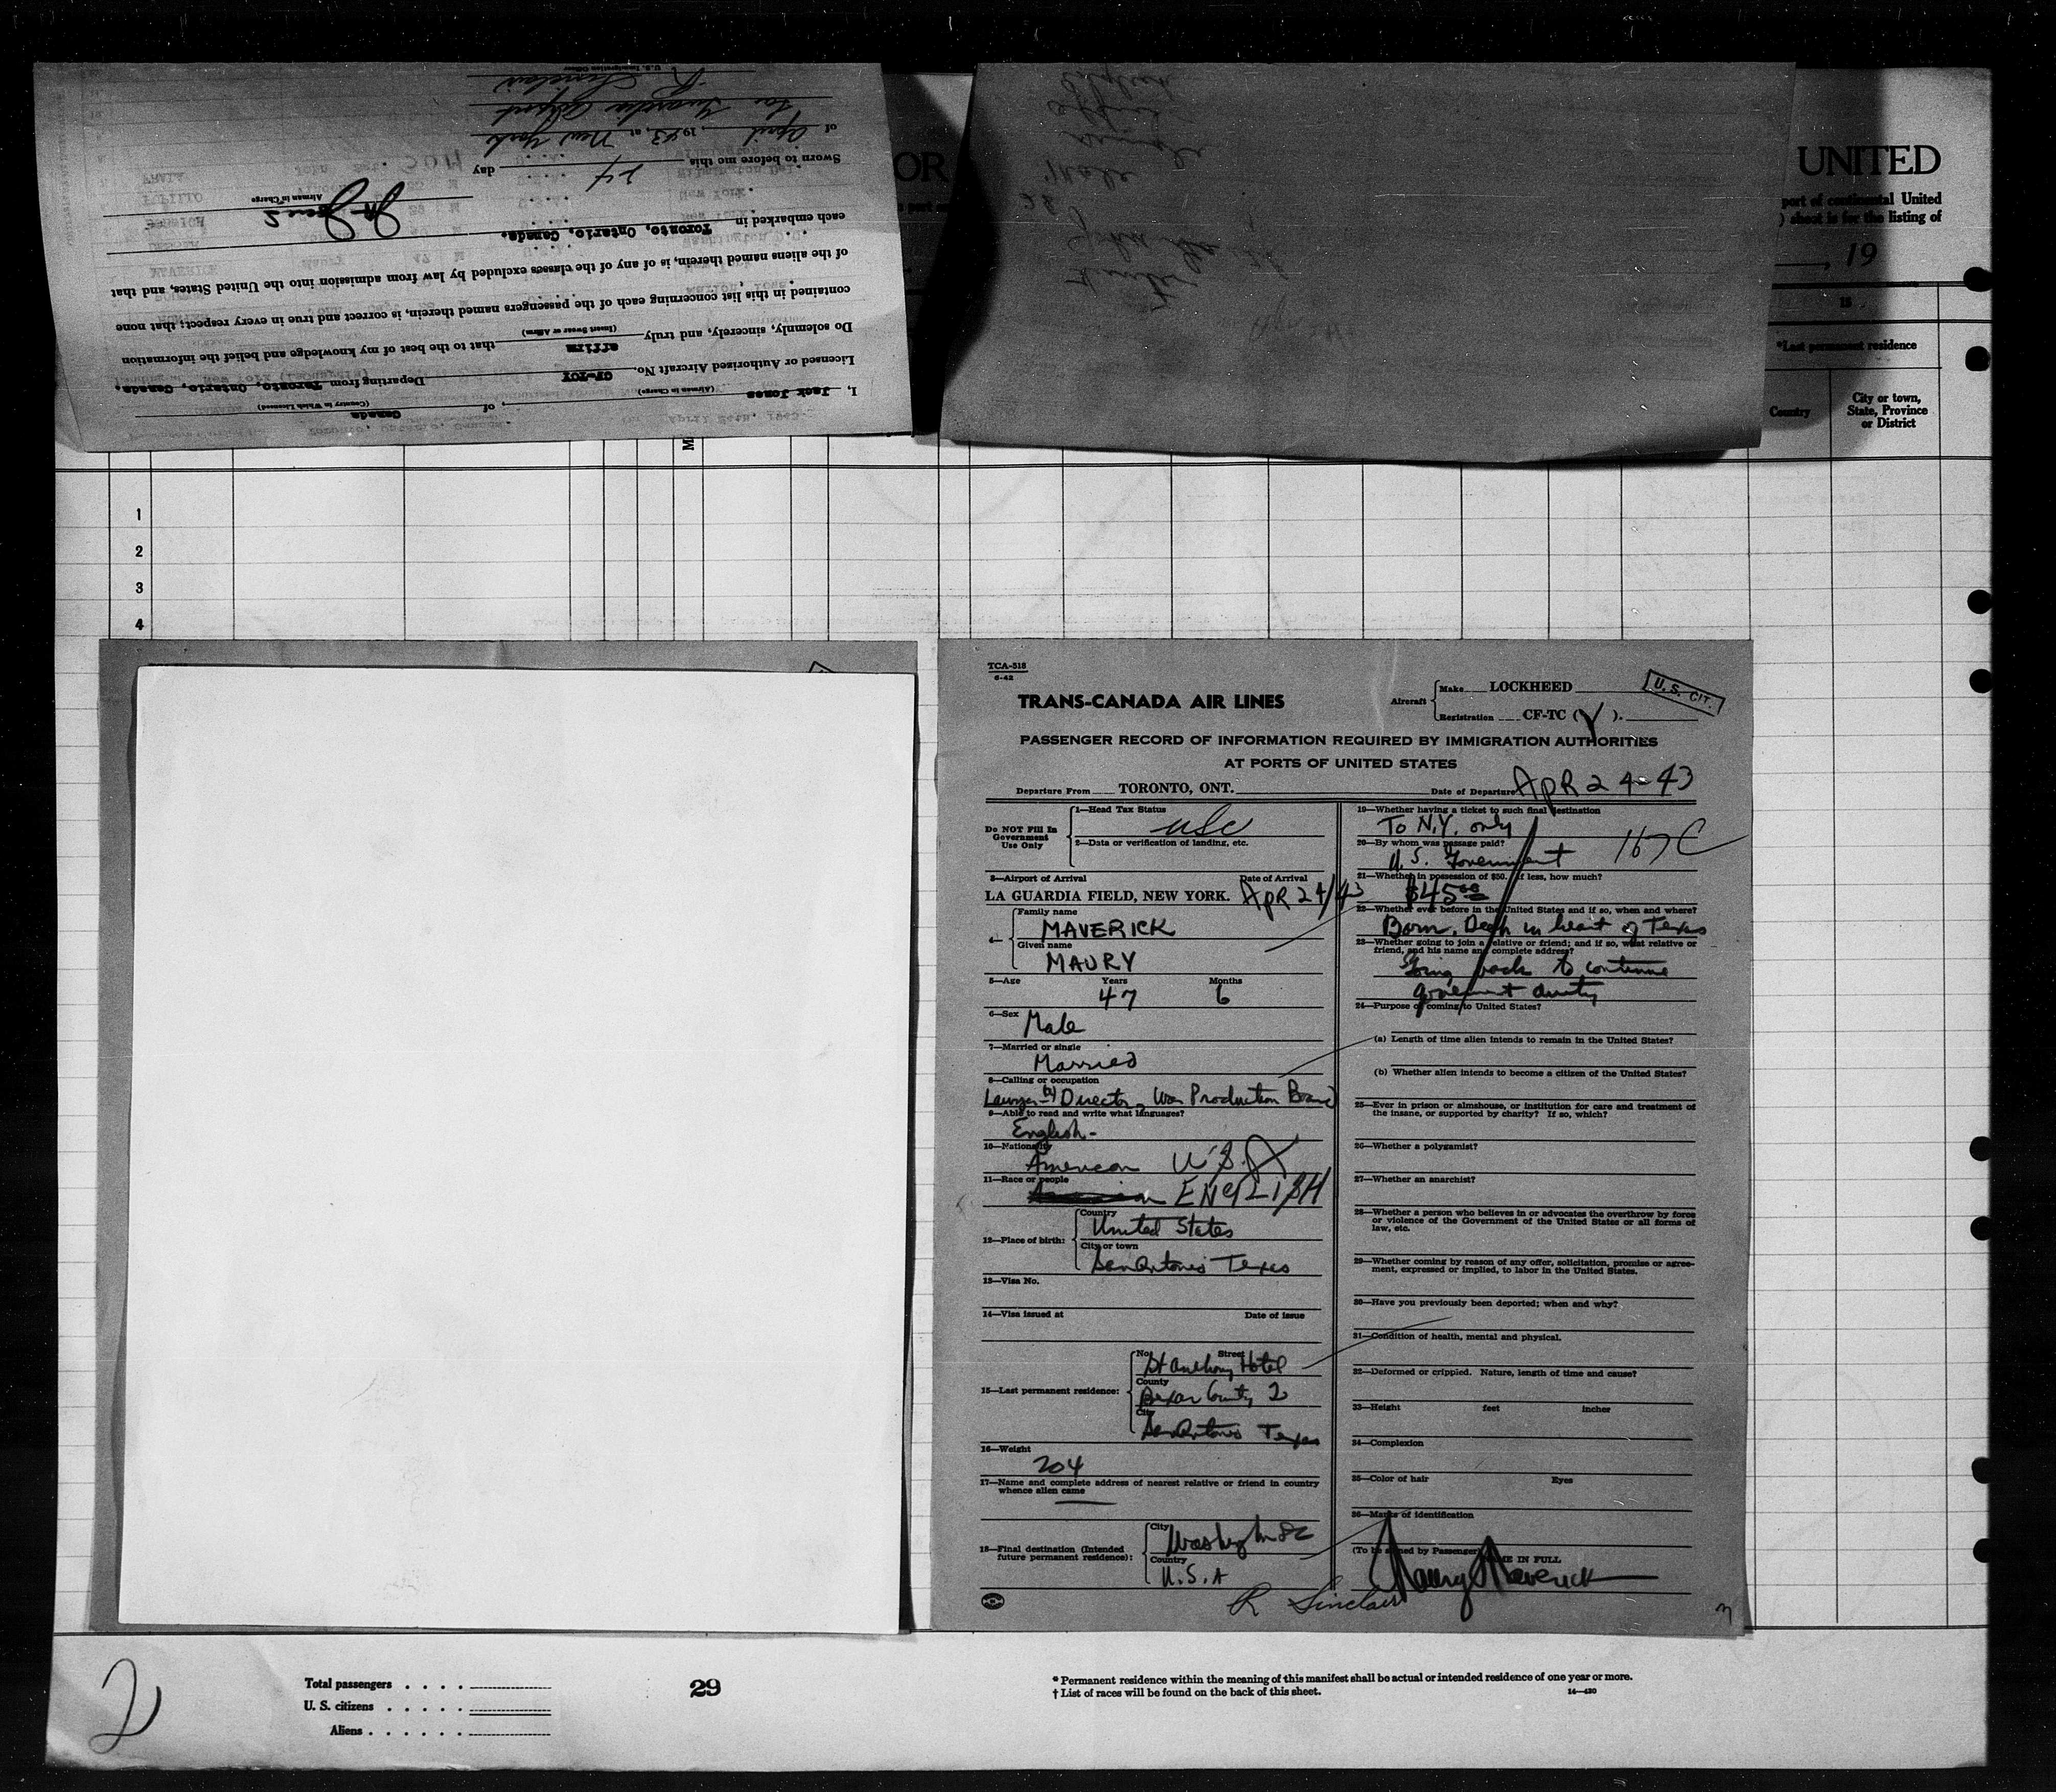 U.S. Immigration Officer
R Sinclair
La Guardia Airport
of April, 1943, at New York
Sworn to before me this 24 day
Airman in Charge
each embarked in Toronto, Ontario, Canada.
of the aliens named therein, is of any of the classes excluded by law from admission into the United States, and that
contained in this list concerning each of the passengers named therein, is correct and true in every respect; that none
(Insert Swear or Affirm)
Do solemnly, sincerely, and truly affirm that to the best of my knowledge and belief the information
Licensed or Authorized Aircraft No. CF-TCY Departing from Toronto, Ontario, Canada,
(Airman in Charge) (Country in Which Licensed)
I, Jack Jones, of Canada
OR
UNITED
port of continental United
) sheet is for the listing of
, 19
15
*Last permanent residence
Country
City or town,
State, Province
or District
M
1
2
3
4
TCA-518
6-42
TRANS-CANADA AIR LINES
Aircraft
Make LOCKHEED
Registration CF-TC (Y).
U.S. CIT.
PASSENGER RECORD OF INFORMATION REQUIRED BY IMMIGRATION AUTHORITIES
AT PORTS OF UNITED STATES
Departure From TORONTO, ONT. Date of Departure APR 24-43
Do NOT Fill In
Government
Use Only
1—Head Tax Status
USC
2—Data or verification of landing, etc.
3—Airport of Arrival Date of Arrival
LA GUARDIA FIELD, NEW YORK. APR 24/43
4—
Family name
MAVERICK
Given name
MAURY
5—Age Years Months
47 6
6—Sex
Male
7—Married or single
Married
8—Calling or occupation
Lawyer Director, War Production Board
9—Able to read and write what languages?
English-
10—Nationality
American U.S.A
11—Race or people
ENGLISH
12—Place of birth:
Country
United States
City or town
San Antonio Texas
13—Visa No.
14—Visa issued at Date of issue
15—Last permanent residence:
No. Street
St Anthony Hotel
County
Bexar County
City
San Antonio Texas
16—Weight
204
17—Name and complete address of nearest relative or friend in country
whence alien came
18—Final destination (Intended
future permanent residence):
City
Washington DC
Country
U.S.A
19—Whether having a ticket to such final destination
To N.Y. only
20—By whom was passage paid?
U.S. Government
167C
21—Whether in possession of $50. If less, how much?
$45.00
22—Whether ever before in the United States and if so, when and where?
Born, Deep in heart of Texas
23—Whether going to join a relative or friend; and if so, what relative or
friend, and his name and complete address?
Going back to continue
government duty
24—Purpose of coming to United States?
(a) Length of time alien intends to remain in the United States?
(b) Whether alien intends to become a citizen of the United States?
25—Ever in prison or almshouse, or institution for care and treatment of
the insane, or supported by charity? If so, which?
26—Whether a polygamist?
27—Whether an anarchist?
28—Whether a person who believes in or advocates the overthrow by force
or violence of the Government of the United States or all forms of
law, etc.
29—Whether coming by reason of any offer, solicitation, promise or agree-
ment, expressed or implied, to labor in the United States.
30—Have you previously been deported; when and why?
31—Condition of health, mental and physical.
32—Deformed or crippled. Nature, length of time and cause?
33—Height feet inches
34—Complexion
35—Color of hair Eyes
36—Marks of identification
(To be signed by Passenger) NAME IN FULL
Maury Maverick
R Sinclair
Total passengers . . . .
U. S. citizens . . . . .
Aliens . . . . . .
29
* Permanent residence within the meaning of this manifest shall be actual or intended residence of one year or more.
† List of races will be found on the back of this sheet.
14—420
2